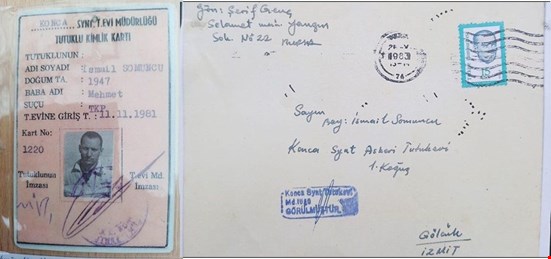 KONCA SYNT. T.EVİ MÜDÜRLÜĞÜ
TUTUKLU KİMLİK KARTI
TUTUKLUNUN :
ADI SOYADI : İsmail SOMUNCU
DOĞUM TA. : 1947
BABA ADI : Mehmet
SUÇU : TKP
T.EVİNE GİRİŞ T. : 11.11.1981
Kart No:
1220
Tutuklunun
İmzası
T.evi Md.
İmzası
Gön: Şerif Genç
Selamet
Sok. No 22
1983
Sayın
Bay: İsmail Somuncu
Konca Syat Askeri Tutukevi
1. Koğuş
Konca Syat Tutukevi
GÖRÜLMÜŞTÜR
Gölcük
İZMİT